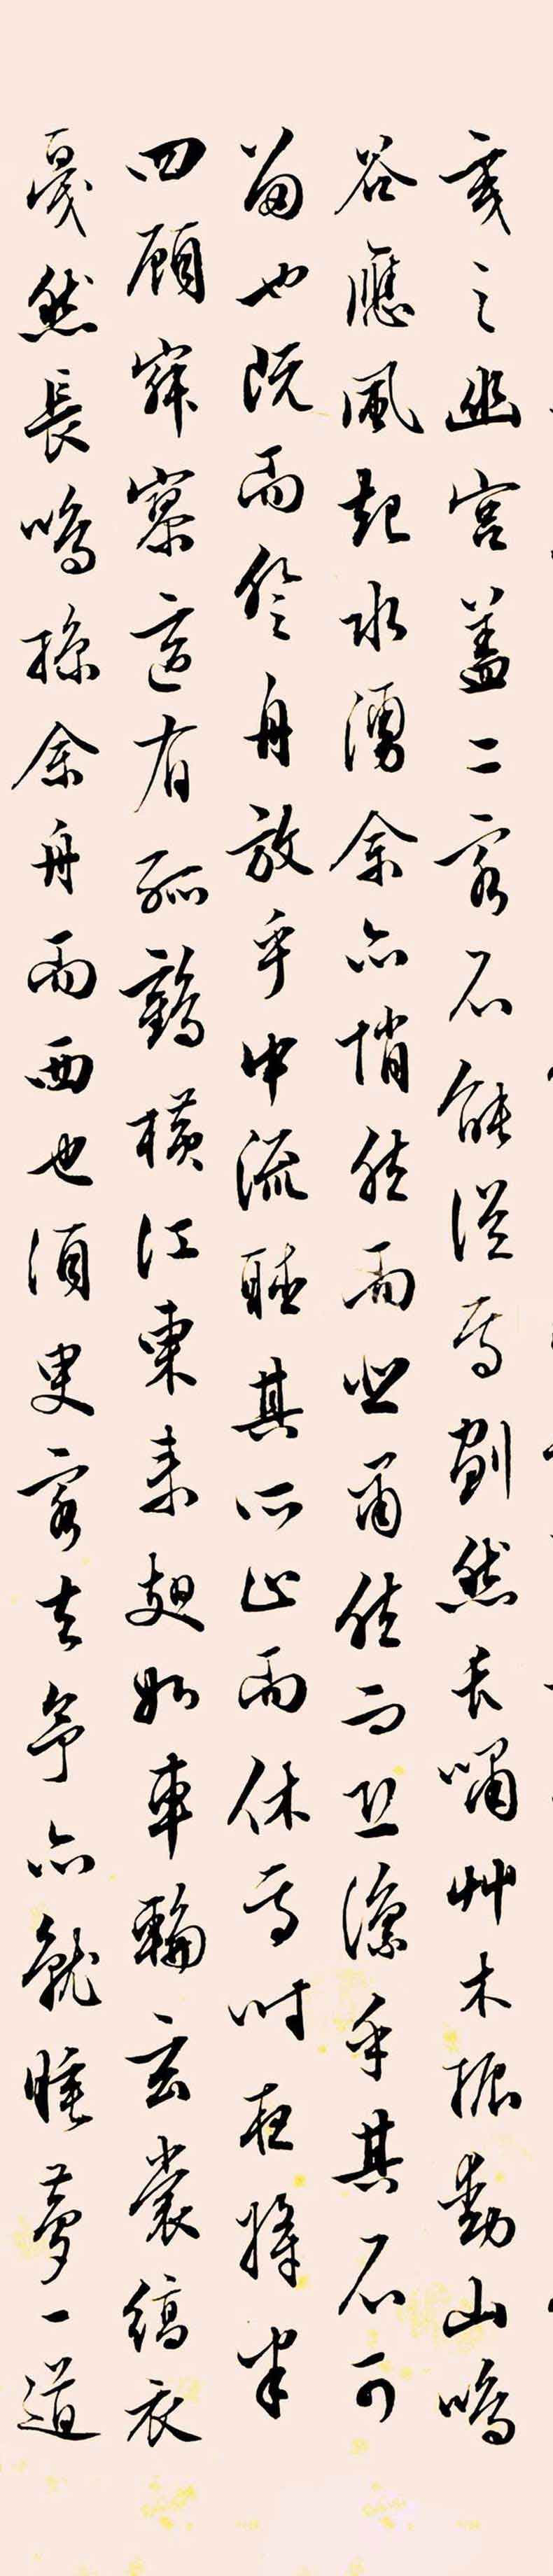 夷之幽宮盖二客不能從焉劃然長嘯艸木振動山鳴
谷應風起水湧余亦悄然而悲肅然而恐凜乎其不可
留也既而登舟放乎中流聽其所止而休焉時夜將半
四顧寂寥適有孤鶴橫江東來翅如車輪玄裳縞衣
戛然長鳴掠余舟而西也須臾客去予亦就睡夢一道